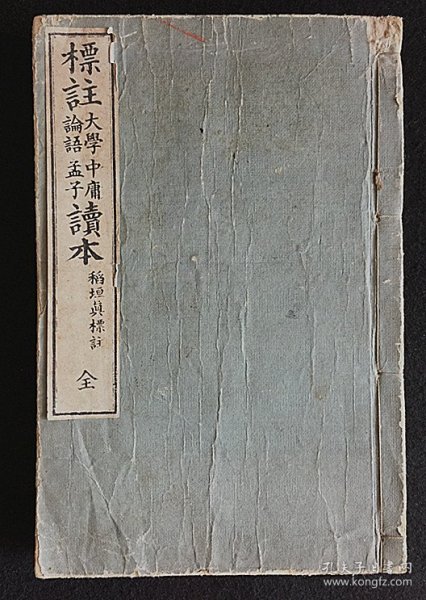 標註
大學中庸
論語孟子
讀本
稻垣眞標註
全
孔夫子旧书网
www.kongfz.com